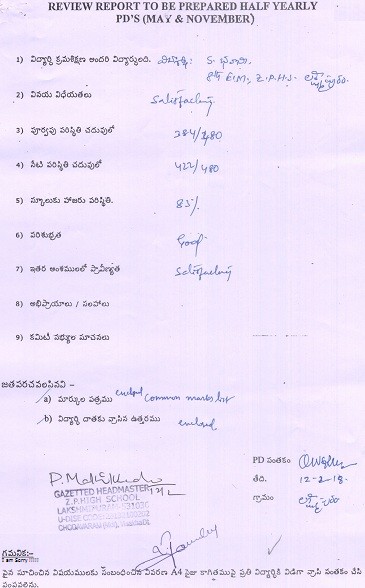 REVIEW REPORT TO BE PREPARED HALF YEARLY
PD'S (MAY & NOVEMBER)
1) విద్యార్థి క్రమశిక్షణ అందరి విద్యార్థులది.
Z.P.H.S.
2) వినయ విధేయతలు Satisfactory
3) పూర్వపు పరిస్థితి చదువులో 384/480
4) నేటి పరిస్థితి చదువులో 422/480
5) స్కూలుకు హాజరు పరిస్థితి. 85%
6) పరిశుభ్రత Good
7) ఇతర అంశములలో ప్రావీణ్యత Satisfactory
8) అభిప్రాయాలు / సలహాలు
9) కమిటీ సభ్యుల సూచనలు
జతపరచవలసినవి -
a) మార్కుల పత్రము enclosed common marks list
b) విద్యార్థి దాతకు వ్రాసిన ఉత్తరము enclosed
PD సంతకం
తేది. 12-2-18.
గ్రామం
GAZETTED HEADMASTER
Z.P.HIGH SCHOOL
LAKSHMIPURAM-531036
గమనిక:-
పైన సూచించిన విషయములకు సంబంధించిన వివరణ A4 సైజు కాగితముపై ప్రతి విద్యార్థికి విడిగా వ్రాసి సంతకం చేసి
పంపవలెను.